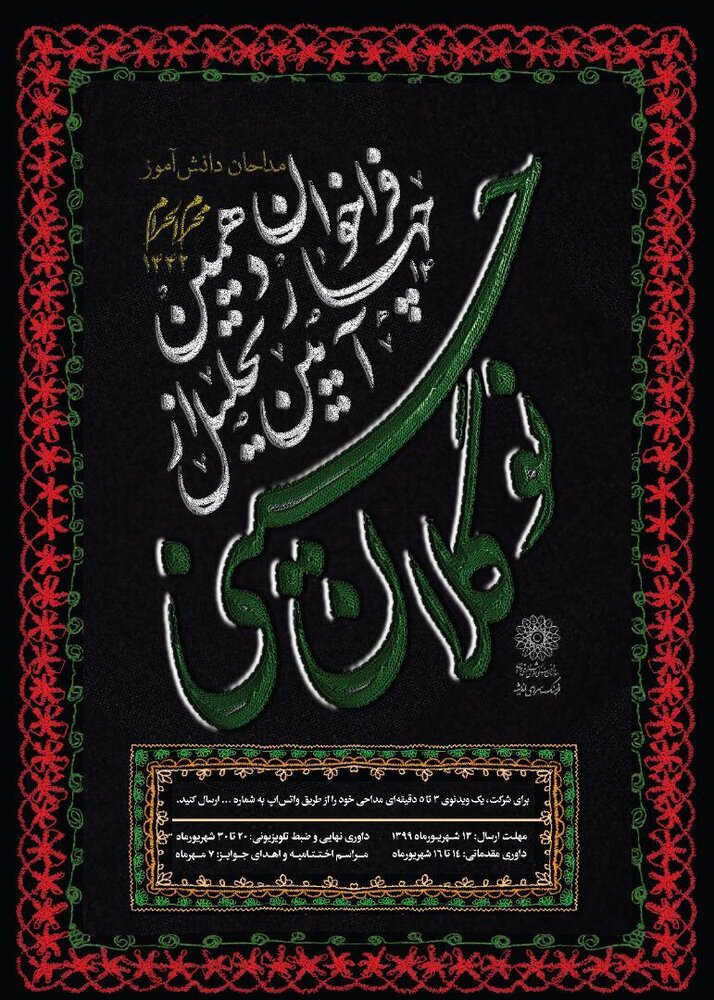 مداحان دانش‌آموز
محرم الحرام
۱۴۴۲
فراخوان
چهاردهمین
۱۴
آیین تجلیل از
نوگلان حسینی
برای شرکت، یک ویدئوی ۳ تا ۵ دقیقه‌ای مداحی خود را از طریق واتس‌اپ به شماره ... ارسال کنید.
مهلت ارسال: ۱۳ شهریورماه ۱۳۹۹
داوری مقدماتی: ۱۴ تا ۱۶ شهریورماه
داوری نهایی و ضبط تلویزیونی: ۲۰ تا ۳۰ شهریورماه
مراسم اختتامیه و اهدای جوایز: ۷ مهرماه